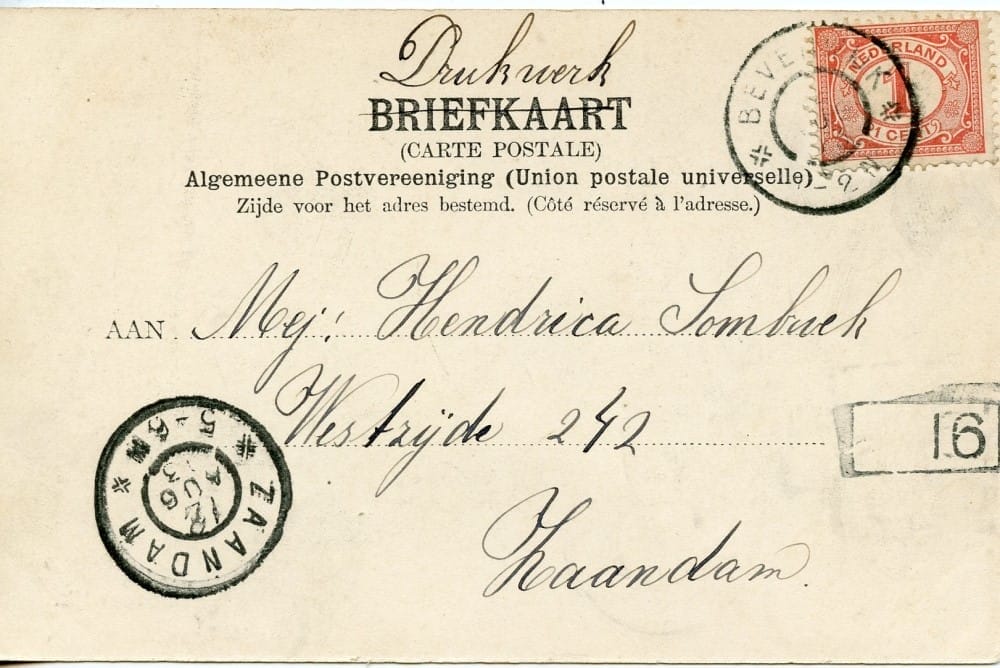 Drukwerk
BRIEFKAART
(CARTE POSTALE)
Algemeene Postvereeniging (Union postale universelle)
Zijde voor het adres bestemd. (Côté réservé à l'adresse.)
NEDERLAND
1
(1 CENT)
AAN Mej: Hendrica Sombroek
Westzijde 242
Zaandam.
16
ZAANDAM
5-6 N
12 AUG